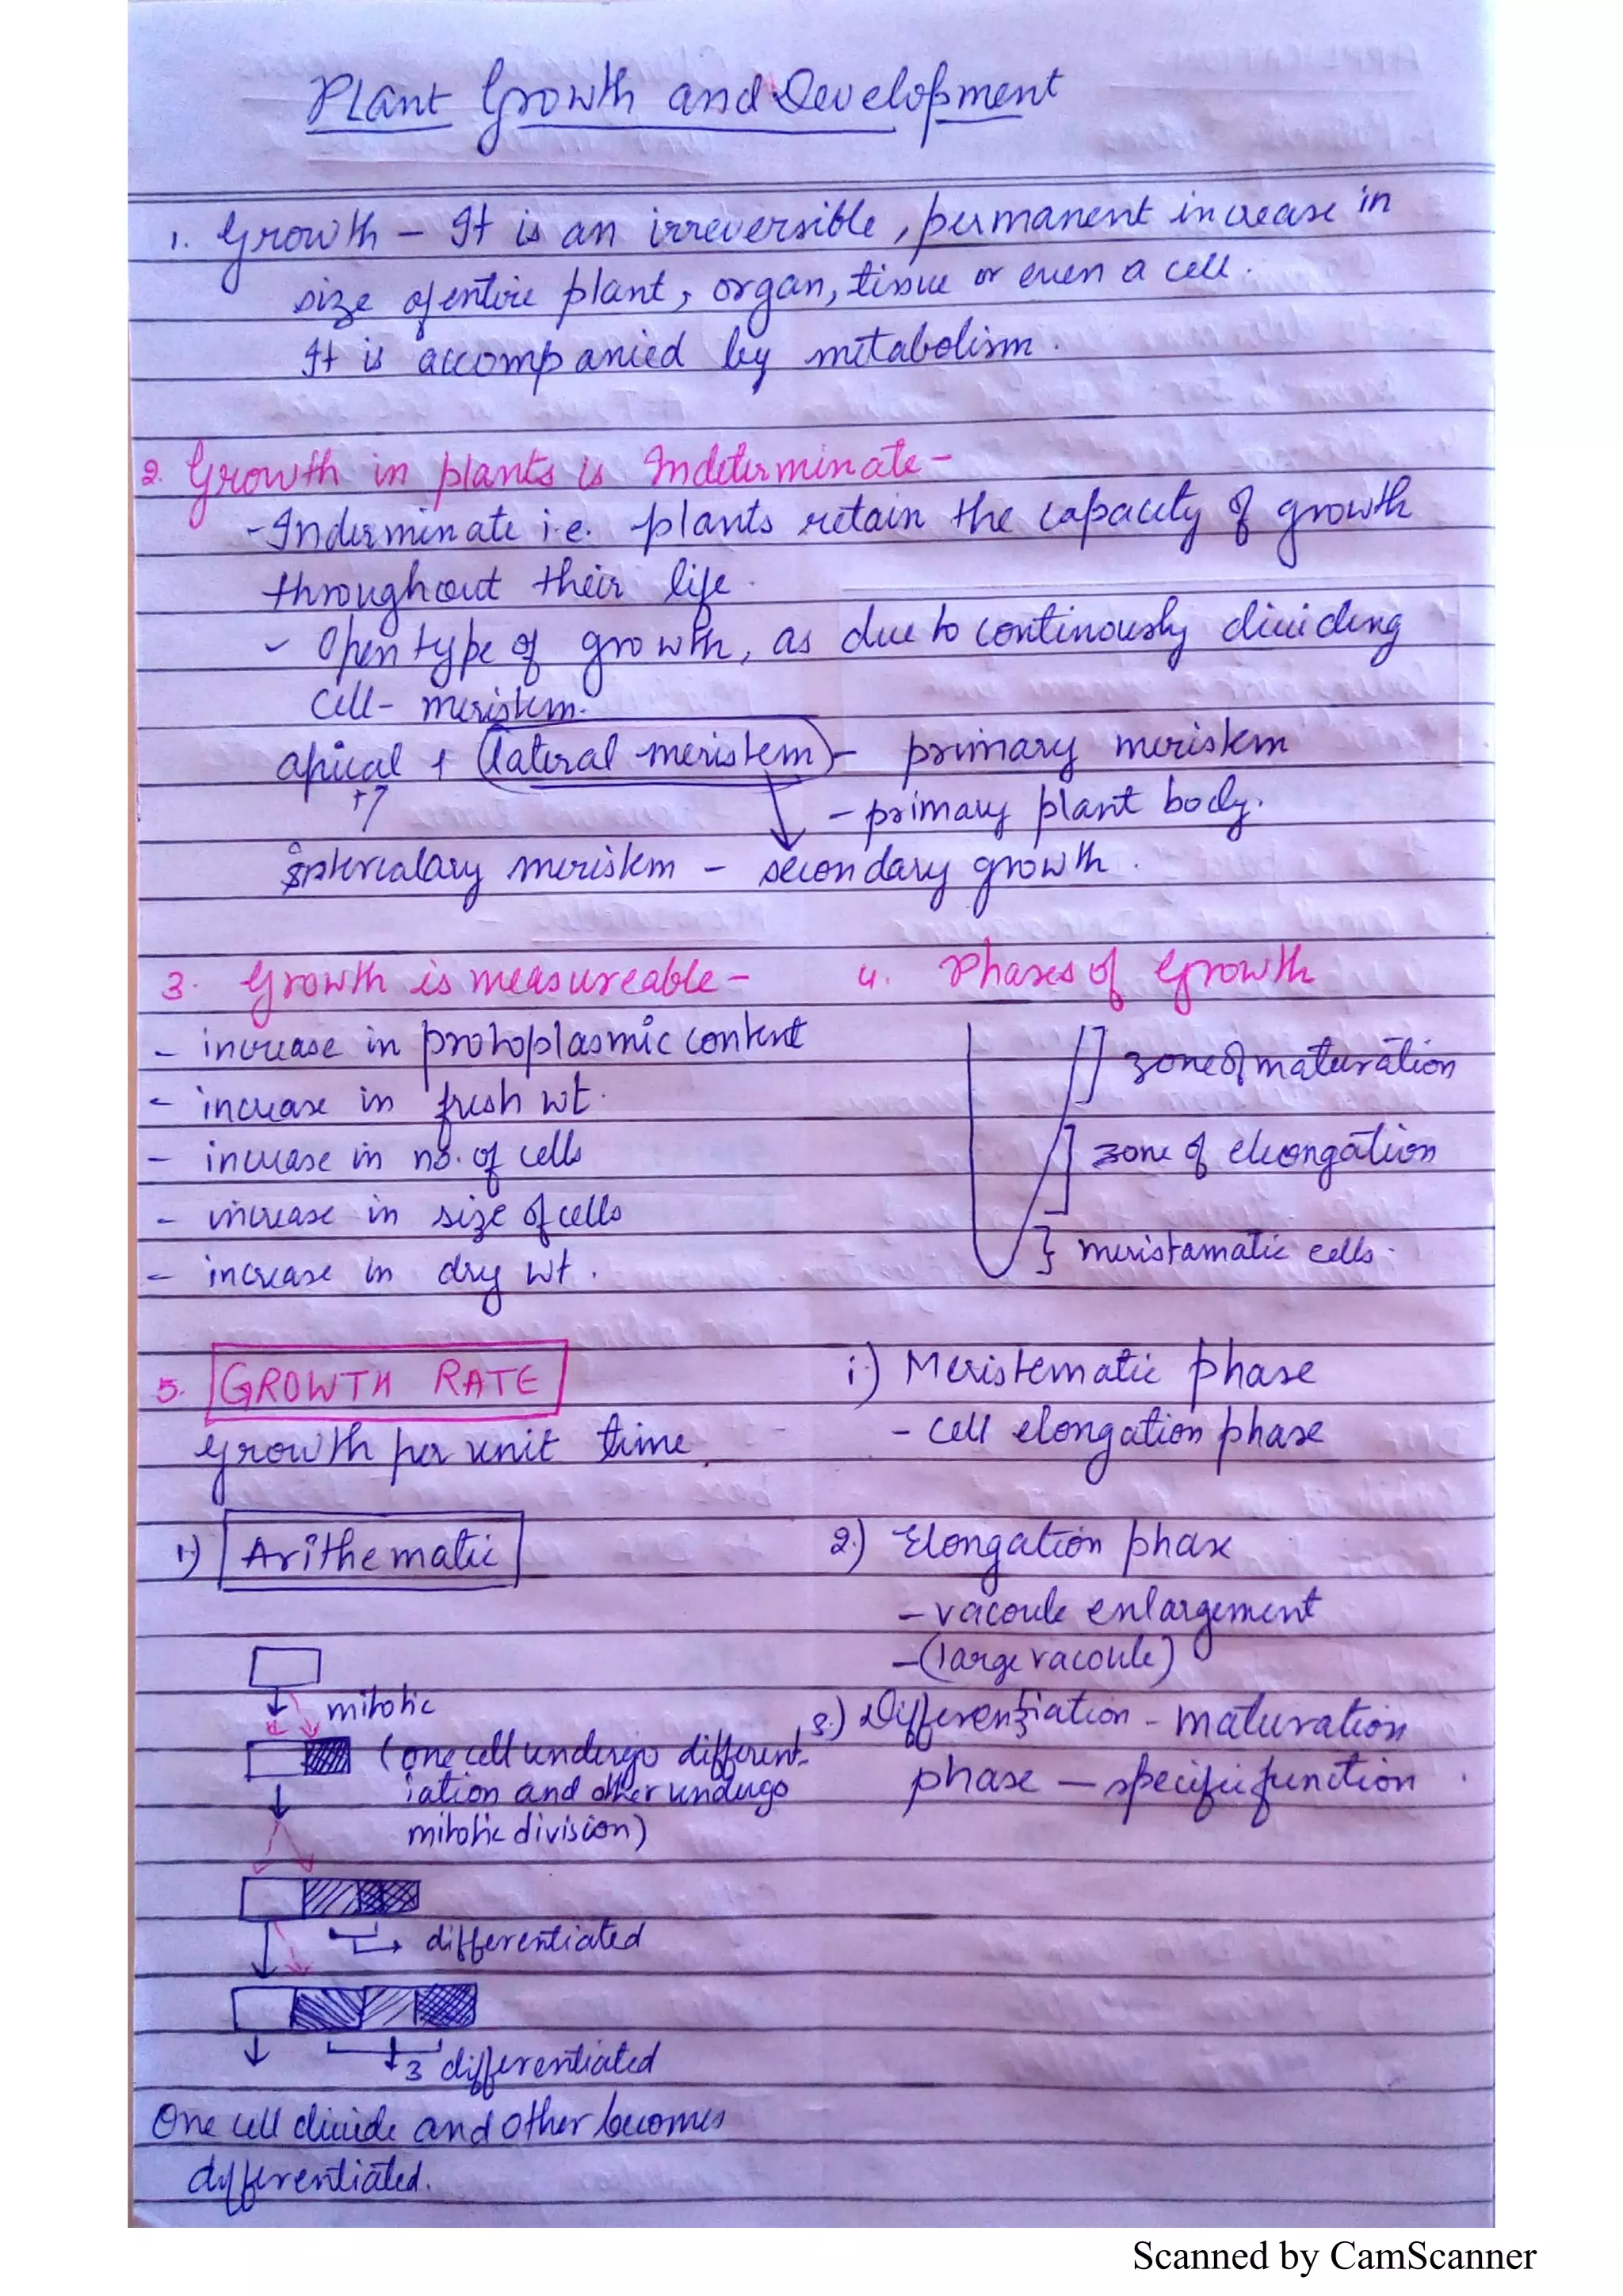 Plant Growth and Development
1. Growth – It is an irreversible, permanent increase in
size of entire plant, organ, tissue or even a cell.
It is accompanied by metabolism.
2. Growth in plants is Indeterminate –
- Inderminate i.e. plants retain the capacity of growth
throughout their life.
- Open type of growth, as due to continously dividing
cell - meristem.
apical + lateral meristem – primary meristem
- primary plant body.
intercalary meristem – secondary growth.
3. Growth is measureable –
- increase in protoplasmic content
- increase in fresh wt.
- increase in no. of cells
- increase in size of cells
- increase in dry wt.
4. Phases of Growth
zone of maturation
zone of elongation
meristamatic cells.
i) Meristematic phase
- cell elongation phase
2) Elongation phase
- vacoule enlargement
- (large vacoule)
3) Differentiation - maturation
phase — specific function.
5. GROWTH RATE
growth per unit time.
1) Arithematic
mitotic
(one cell undergo different-
iation and other undergo
mitotic division)
differentiated
3 differentiated
One cell divide and other becomes
differentiated.
Scanned by CamScanner